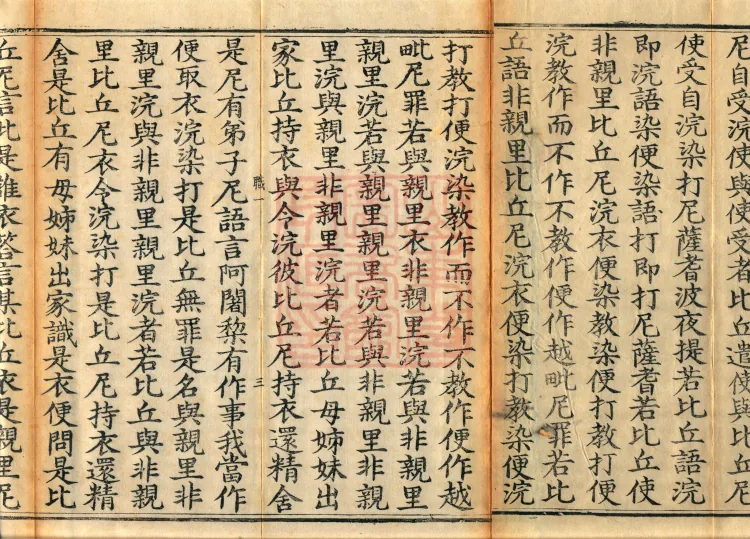 尼自受浣使與使受者比丘遣使與比丘尼
使受自浣染打尼薩耆波夜提若比丘語浣
即浣語染便染語打即打尼薩耆若比丘使
非親里比丘尼浣衣便染教染便打教打便
浣教作而不作不教作便作越毗尼罪若比
丘語非親里比丘尼浣衣便染打教染便浣
打教打便浣染教作而不作不教作便作越
毗尼罪若與親里衣非親里浣若與非親里
親里浣若與親里親里浣若與非親里非親
里浣與親里非親里浣者若比丘母姊妹出
家比丘持衣與令浣彼比丘尼持衣還精舍
職一 三
是尼有弟子尼語言阿闍棃有作事我當作
便取衣浣染打是比丘無罪是名與親里非
親里浣與非親里親里浣者若比丘與非親
里比丘尼衣令浣染打是比丘尼持衣還精
舍是比丘有母姊妹出家識是衣便問是比
丘尼言此是誰衣答言某比丘衣是親里尼